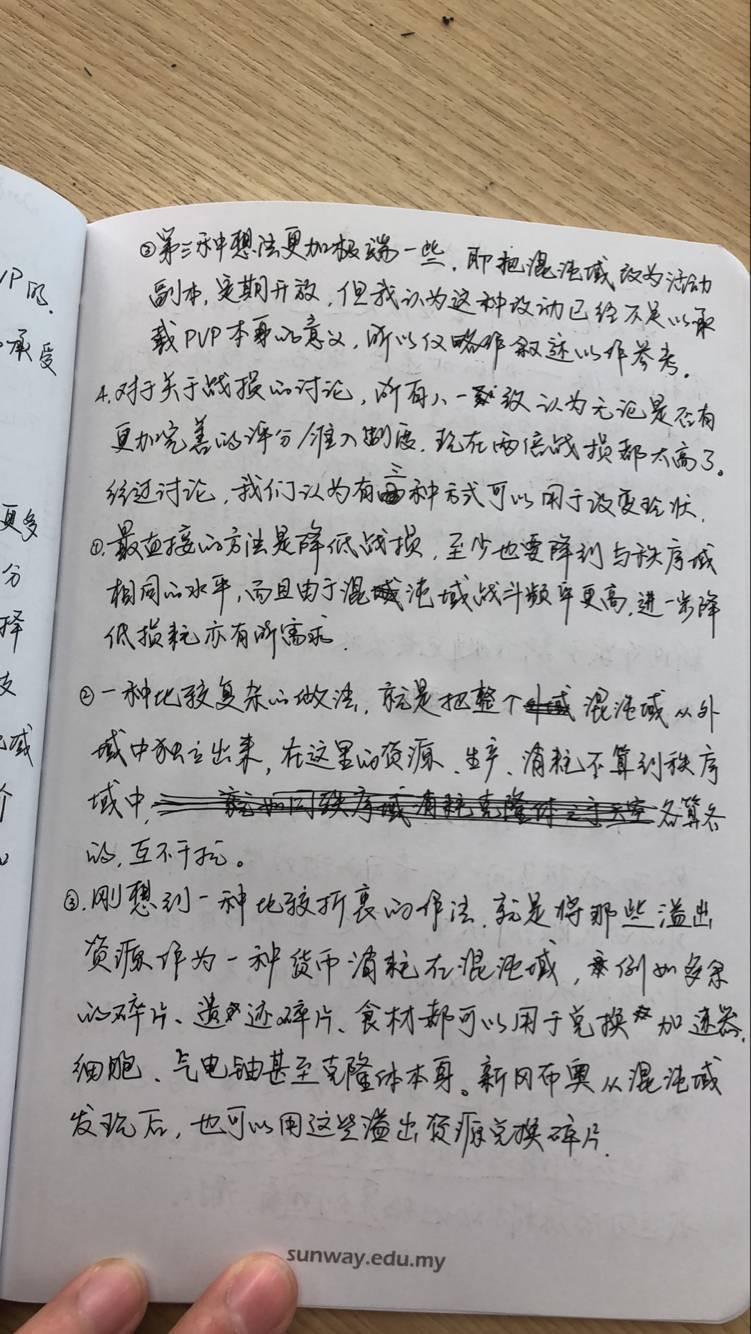 VP的.
承受
更多
分
择
域
个
③第三种想法更加极端一些,即把混沌域改为活动
副本,定期开放,但我认为这种改动已经不足以承
载PVP本身的意义,所以仅略作叙述以作参考。
4.对于关于战损的讨论,所有人一致认为无论是否有
更加完善的评分/准入制度,现在两倍战损都太高了。
经过讨论,我们认为有三种方式可以用于改变现状.
①.最直接的方法是降低战损,至少也要降到与秩序域
相同的水平,而且由于混沌域战斗频率更高,进一步降
低损耗亦有所需求.
②一种比较复杂的做法,就是把整个混沌域从外
域中独立出来,在这里的资源、生产、消耗不算到秩序
域中,各算各
的,互不干扰。
③.刚想到一种比较折衷的作法,就是将那些溢出
资源作为一种货币消耗在混沌域,例如多余
的碎片、遗迹碎片、食材都可以用于兑换加速器,
细胞、气电铀甚至克隆体本身。新冈布奥从混沌域
发现后,也可以用这些溢出资源兑换碎片.
sunway.edu.my